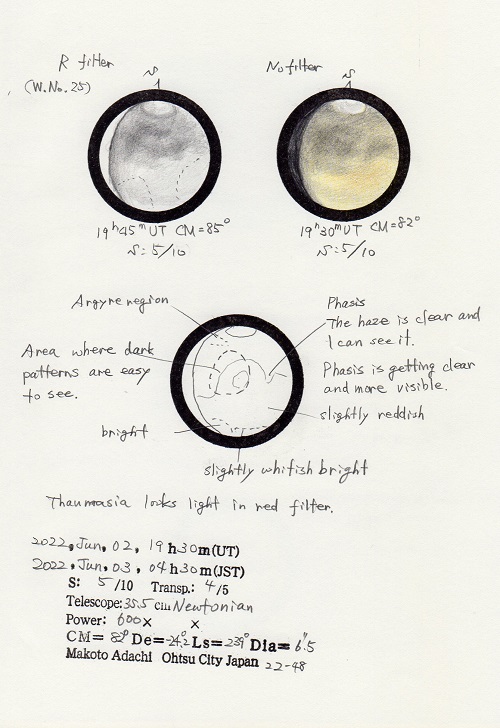 R filter
(W.No.25)
S
No filter
S
19h45m UT CM=85°
S:5/10
19h30m UT CM=82°
S:5/10
Argyre region
Phasis
The haze is clear and
I can see it.
Area where dark
patterns are easy
to see.
Phasis is getting clear
and more visible.
slightly reddish
bright
slightly whitish bright
Thaumasia looks light in red filter.
2022, Jun, 02, 19 h 30 m (UT)
2022, Jun, 03, 04 h 30 m (JST)
S: 5/10 Transp.: 4/5
Telescope: 35.5 cm Newtonian
Power: 600× ×
CM= 82° De=-24.2 Ls=239° Dia= 6".5
Makoto Adachi Ohtsu City Japan 22-48